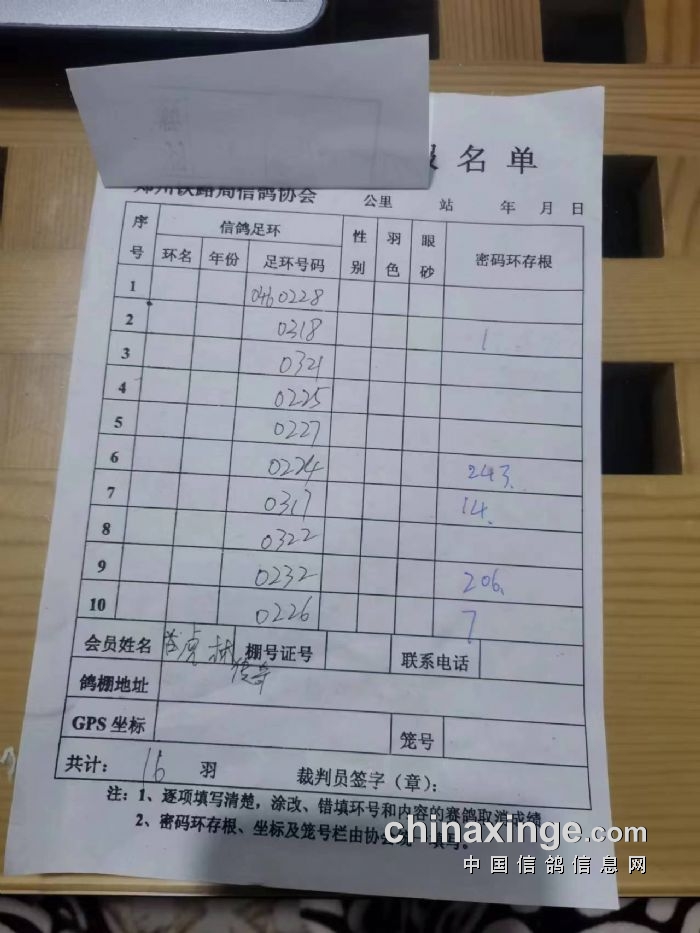 名单
郑州铁路局信鸽协会 公里 站 年 月 日
序号 信鸽足环 性别 羽色 眼砂 密码环存根
环名 年份 足环号码
1 0460228
2 0318 1
3 0321
4 0225
5 0227
6 0224 243.
7 0317 14.
8 0322
9 0232 206.
10 0226 7
会员姓名 棚号证号 联系电话
鸽棚地址
GPS 坐标 笼号
共计: 16 羽 裁判员签字(章):
注: 1、逐项填写清楚, 涂改、错填环号和内容的赛鸽取消成绩
2、密码环存根、坐标及笼号栏由协会统一填写。
chinaxinge.com
中国信鸽信息网